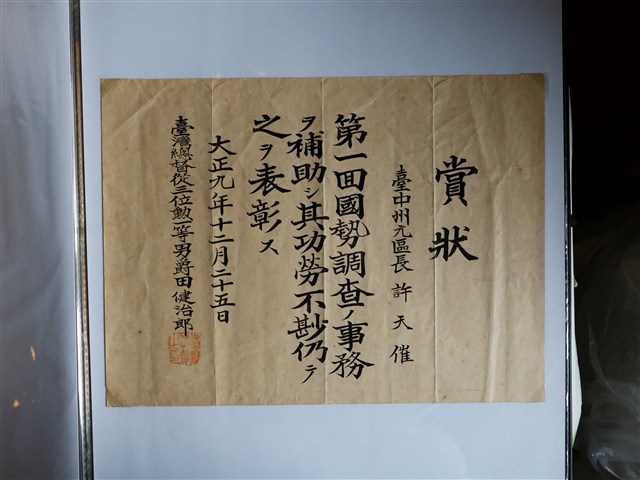 賞狀
臺中州元區長 許天催
第一回國勢調查ノ事務
ヲ補助シ其功勞不尠仍テ
之ヲ表彰ス
大正九年十二月二十五日
臺灣總督從三位勲一等男爵田健治郎